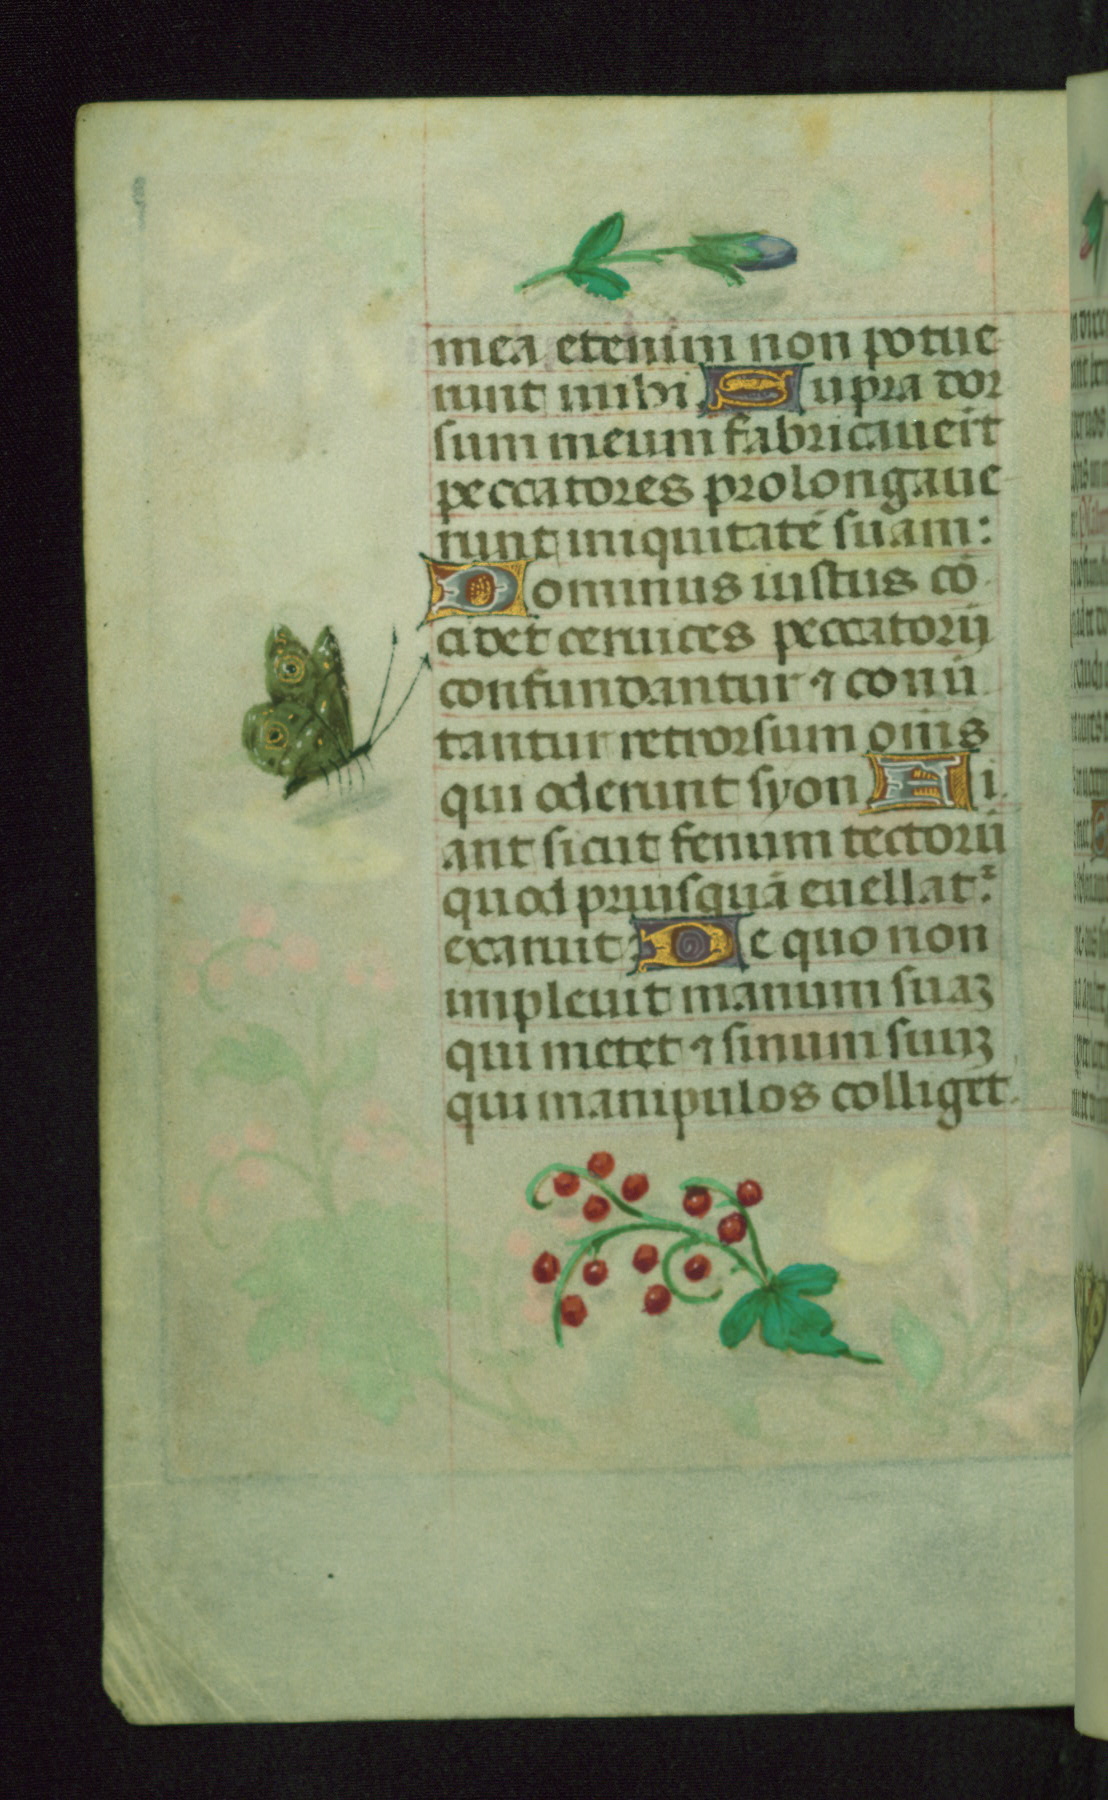 mea etenim non potue
runt mihi Supra dor
sum meum fabricauert̄
peccatores prolongaue
runt iniquitatē suam:
Dominus iustus cō
cidet ceruices peccatorū
confundantur ⁊ conū
tantur retrorsum oīns
qui oderunt syon Fi
ant sicut fenum tectorū
quod priusquā euellat᷑
exaruit: De quo non
impleuit manum suaꝫ
qui metet ⁊ sinum suūꝫ
qui manipulos colliget.